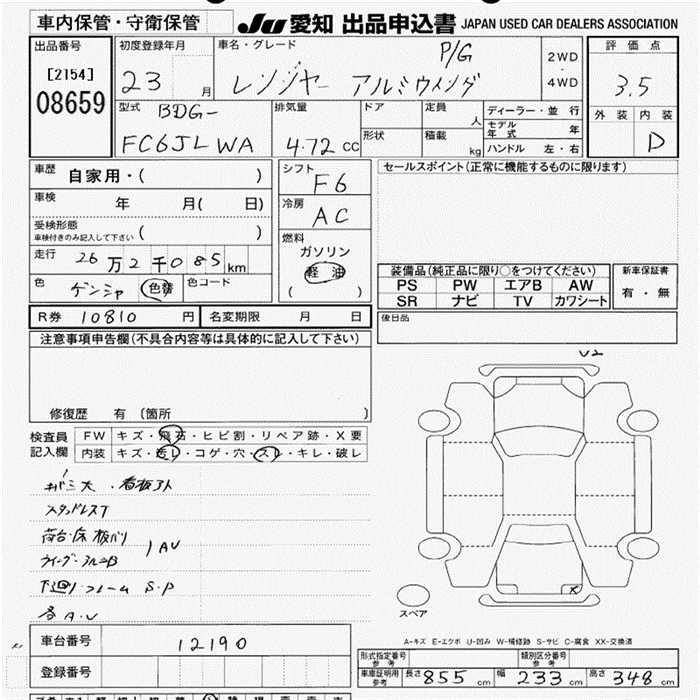 車内保管・守衛保管 JU 愛知 出品申込書 JAPAN USED CAR DEALERS ASSOCIATION
出品番号 初度登録年月 車名・グレード P/G 2WD 評価点
[2154] 23 月 レンジャー アルミウイング 4WD 3.5
08659 型式 BDG- 排気量 ドア 定員 人 ディーラー・並行 外装 内装
FC6JLWA 4.72 CC 形状 積載 kg モデル年式 年 D
ハンドル 左・右
車歴 自家用・( ) シフト F6 セールスポイント(正常に機能するものに限ります)
車検 年 月( 日) 冷房 AC
受検形態 車検付きのみ記入して下さい ( ) 燃料
走行 26万2千085km ガソリン
色 ゲンシャ 色替 色コード 軽油 ( )
装備品(純正品に限り○をつけてください) 新車保証書
PS PW エアB AW 有・無
SR ナビ TV カワシート
R券 10810 円 名変期限 月 日 後日品
注意事項申告欄(不具合内容等は具体的に記入して下さい) U2
修復歴 有 (箇所 )
検査員 FW キズ・飛石・ヒビ割・リペア跡・X要
記入欄 内装 キズ・汚レ・コゲ・穴・スレ・キレ・破レ
看板アト
スタッドレスT
荷台・床 板バリ
1AU
下廻リ・フレーム S・P
各A・U
X
スペア
A-キズ E-エクボ U-凹み W-補修跡 S-サビ C-腐食 XX-交換済
車台番号 12190 形式指定番号 参考 類別区分番号 参考
登録番号 車庫証明用 参考 長さ 855 cm 幅 233 cm 高さ 348 cm